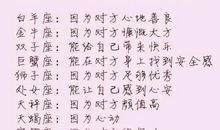 白羊座：因为对方心地善良
金牛座：因为对方慷慨大方
双子座：能给自己带来快乐
巨蟹座：能在对方身上找到安全感
狮子座：因为对方足够优秀
处女座：能让自己感到心安
天秤座：因为对方颜值高
天蝎座：因为心动